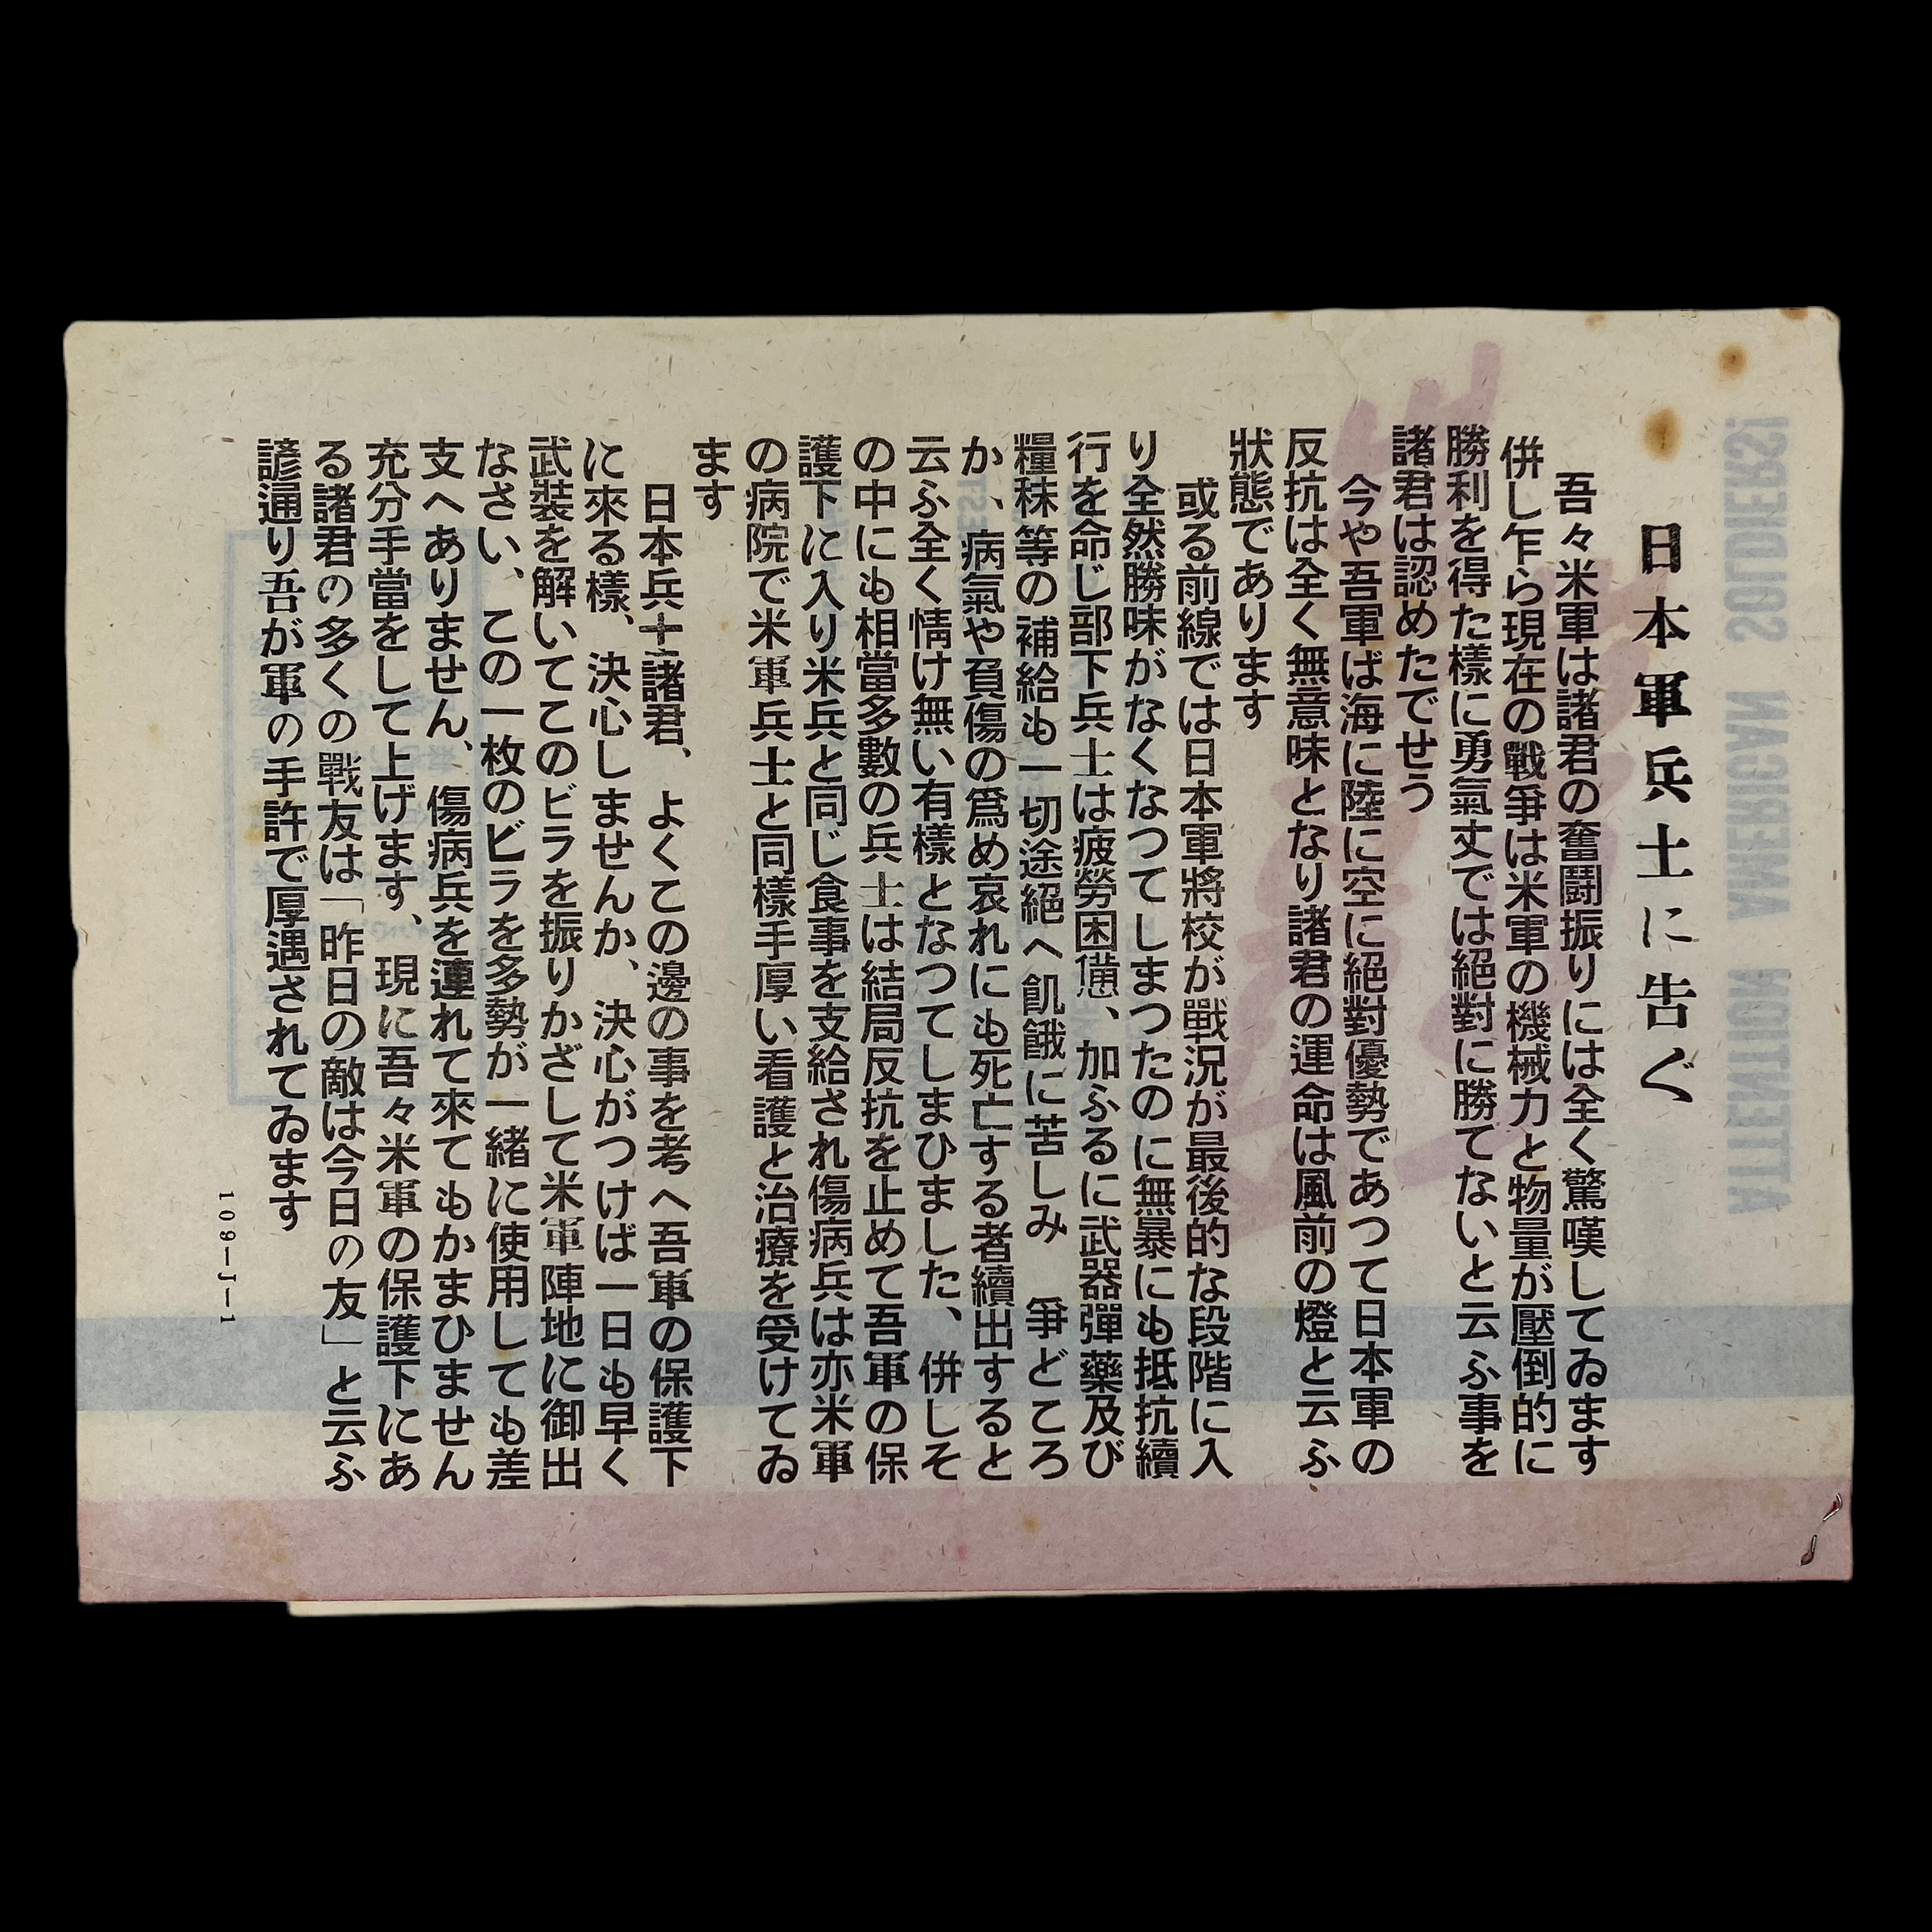 日本軍兵士に告ぐ
吾々米軍は諸君の奮鬪振りには全く驚嘆してゐます
併し乍ら現在の戰爭は米軍の機械力と物量が壓倒的に
勝利を得た樣に勇氣丈では絕對に勝てないと云ふ事を
諸君は認めたでせう
今や吾軍ば海に陸に空に絕對優勢であつて日本軍の
反抗は全く無意味となり諸君の運命は風前の燈と云ふ
狀態であります
或る前線では日本軍將校が戰況が最後的な段階に入
り全然勝味がなくなつてしまつたのに無暴にも抵抗續
行を命じ部下兵士は疲勞困憊、加ふるに武器彈藥及び
糧秣等の補給も一切途絕へ飢餓に苦しみ 爭どころ
か、病氣や負傷の爲め哀れにも死亡する者續出すると
云ふ全く情け無い有樣となつてしまひました、併しそ
の中にも相當多數の兵士は結局反抗を止めて吾軍の保
護下に入り米兵と同じ食事を支給され傷病兵は亦米軍
の病院で米軍兵士と同樣手厚い看護と治療を受けてゐ
ます
日本兵士諸君、よくこの邊の事を考へ吾軍の保護下
に來る樣、決心しませんか、決心がつけば一日も早く
武裝を解いてこのビラを振りかざして米軍陣地に御出
なさい、この一枚のビラを多勢が一緒に使用しても差
支へありません、傷病兵を連れて來てもかまひません
充分手當をして上げます、現に吾々米軍の保護下にあ
る諸君の多くの戰友は「昨日の敵は今日の友」と云ふ
諺通り吾が軍の手許で厚遇されてゐます
109-J-1
ATTENTION AMERICAN SOLDIERS!